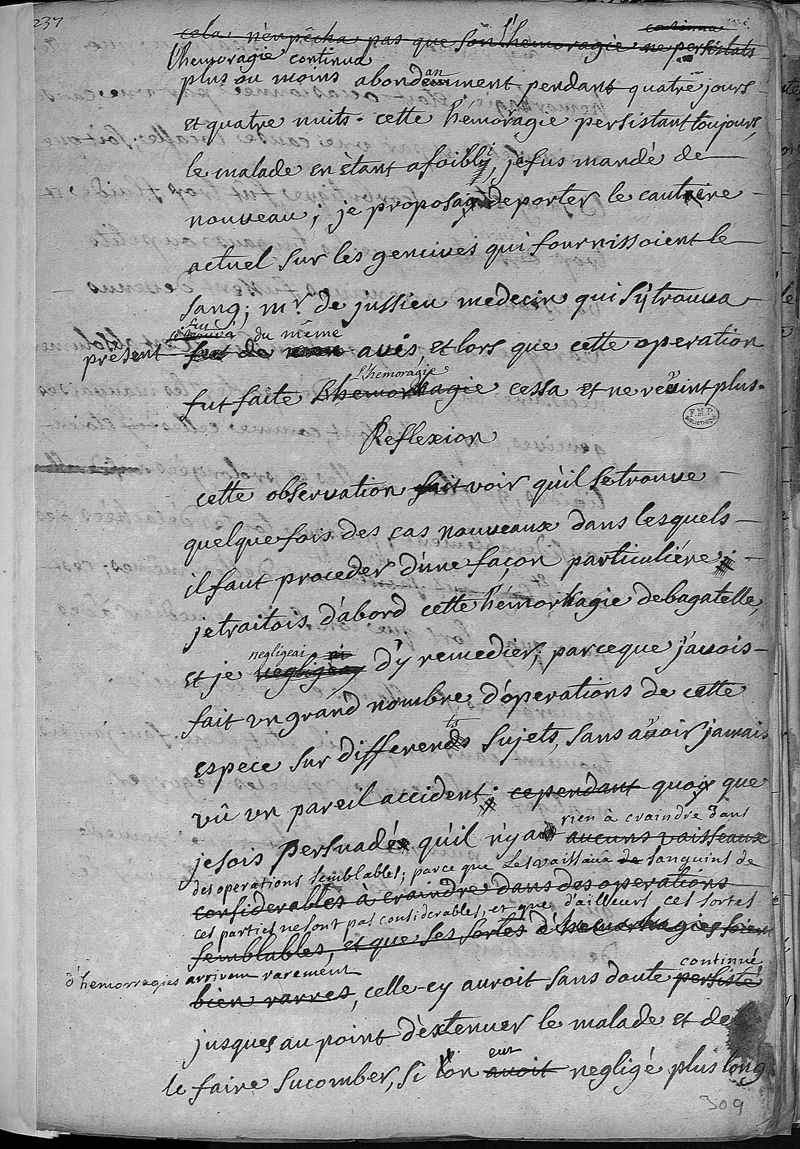 237
cela n'enpêcha pas que son l'hemoragie ne persistats continua
l'hemoragie continua
plus ou moins abondanment pendant quatre jours
et quatre nuits. cette hémoragie persistant toujours,
le malade en êtant afoibly, je fus mandé de
nouveau; je proposay de porter le cautere
actuel sur les gencives qui fournissoient le
sang; mr. de jussieu medecin qui s'y trouva
fut du même
présent fut de mon avis et lors que cette operation
l'hemoragie
fut faite l'hemorragie cessa et ne revint plus.
F.M.P. BIBLIOTHEQUE
Reflexion
cette observation fait voir qu'il se trouve
quelque fois des cas nouveaux dans lesquels
il faut proceder d'une façon particuliére;
je traitois d'abord cette hémorhagie de bagatelle,
negligeai
et je negligeay d'y remedier; parceque j'avois
fait un grand nombre d'operations de cette
ts
espece sur differends sujets, sans avoir jamais
vû un pareil accident; cependant quoy que
rien à craindre dans
je sois persuadé qu'il n'y a aucuns vaisseaux
des operations semblables; parce que les vaissaux de sanguins de
considerables à craindre dans des operations
ces parties ne sont pas considerables, et que d'ailleurs ces sortes
semblables, et que ses sortes d'hemorhagies soient
d'hemorragies arrivent rarement
continué
bien rarres, celle-cy auroit sans doute persisté
jusques au point d'extenuer le malade et de
eut
le faire sucomber, si l'on avoit negligé plus long
309